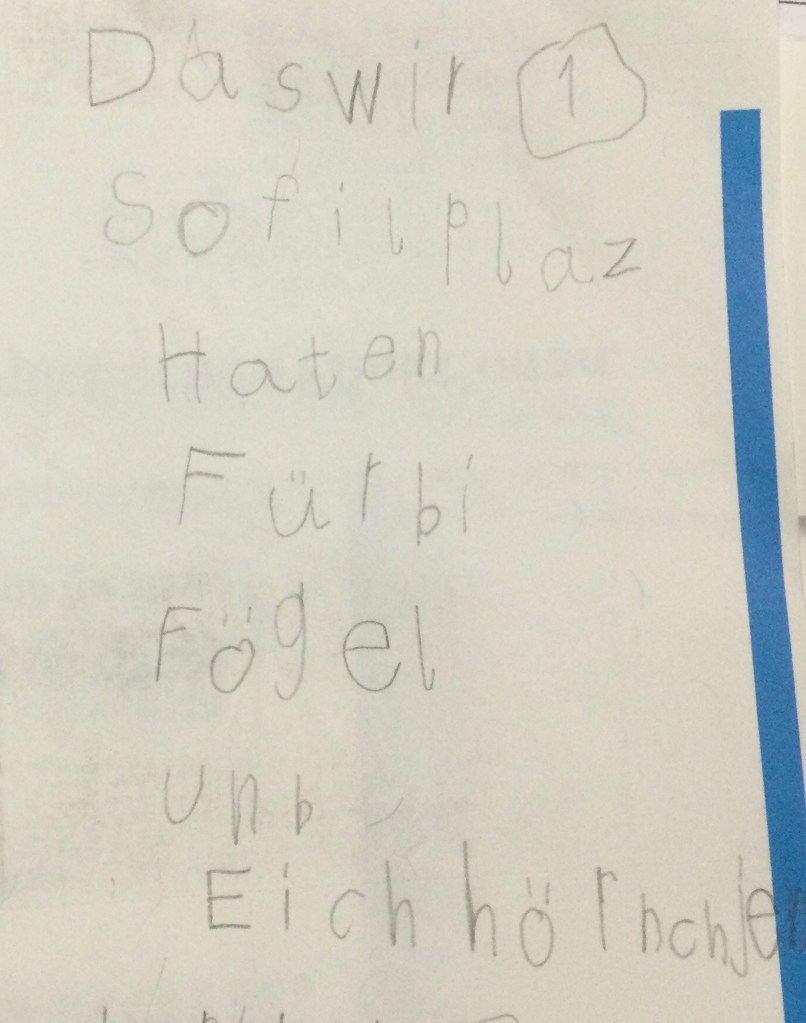 Daswir 1
Sofilplaz
Haten
Fürbi
Fögel
unb
Eichhörnchjen